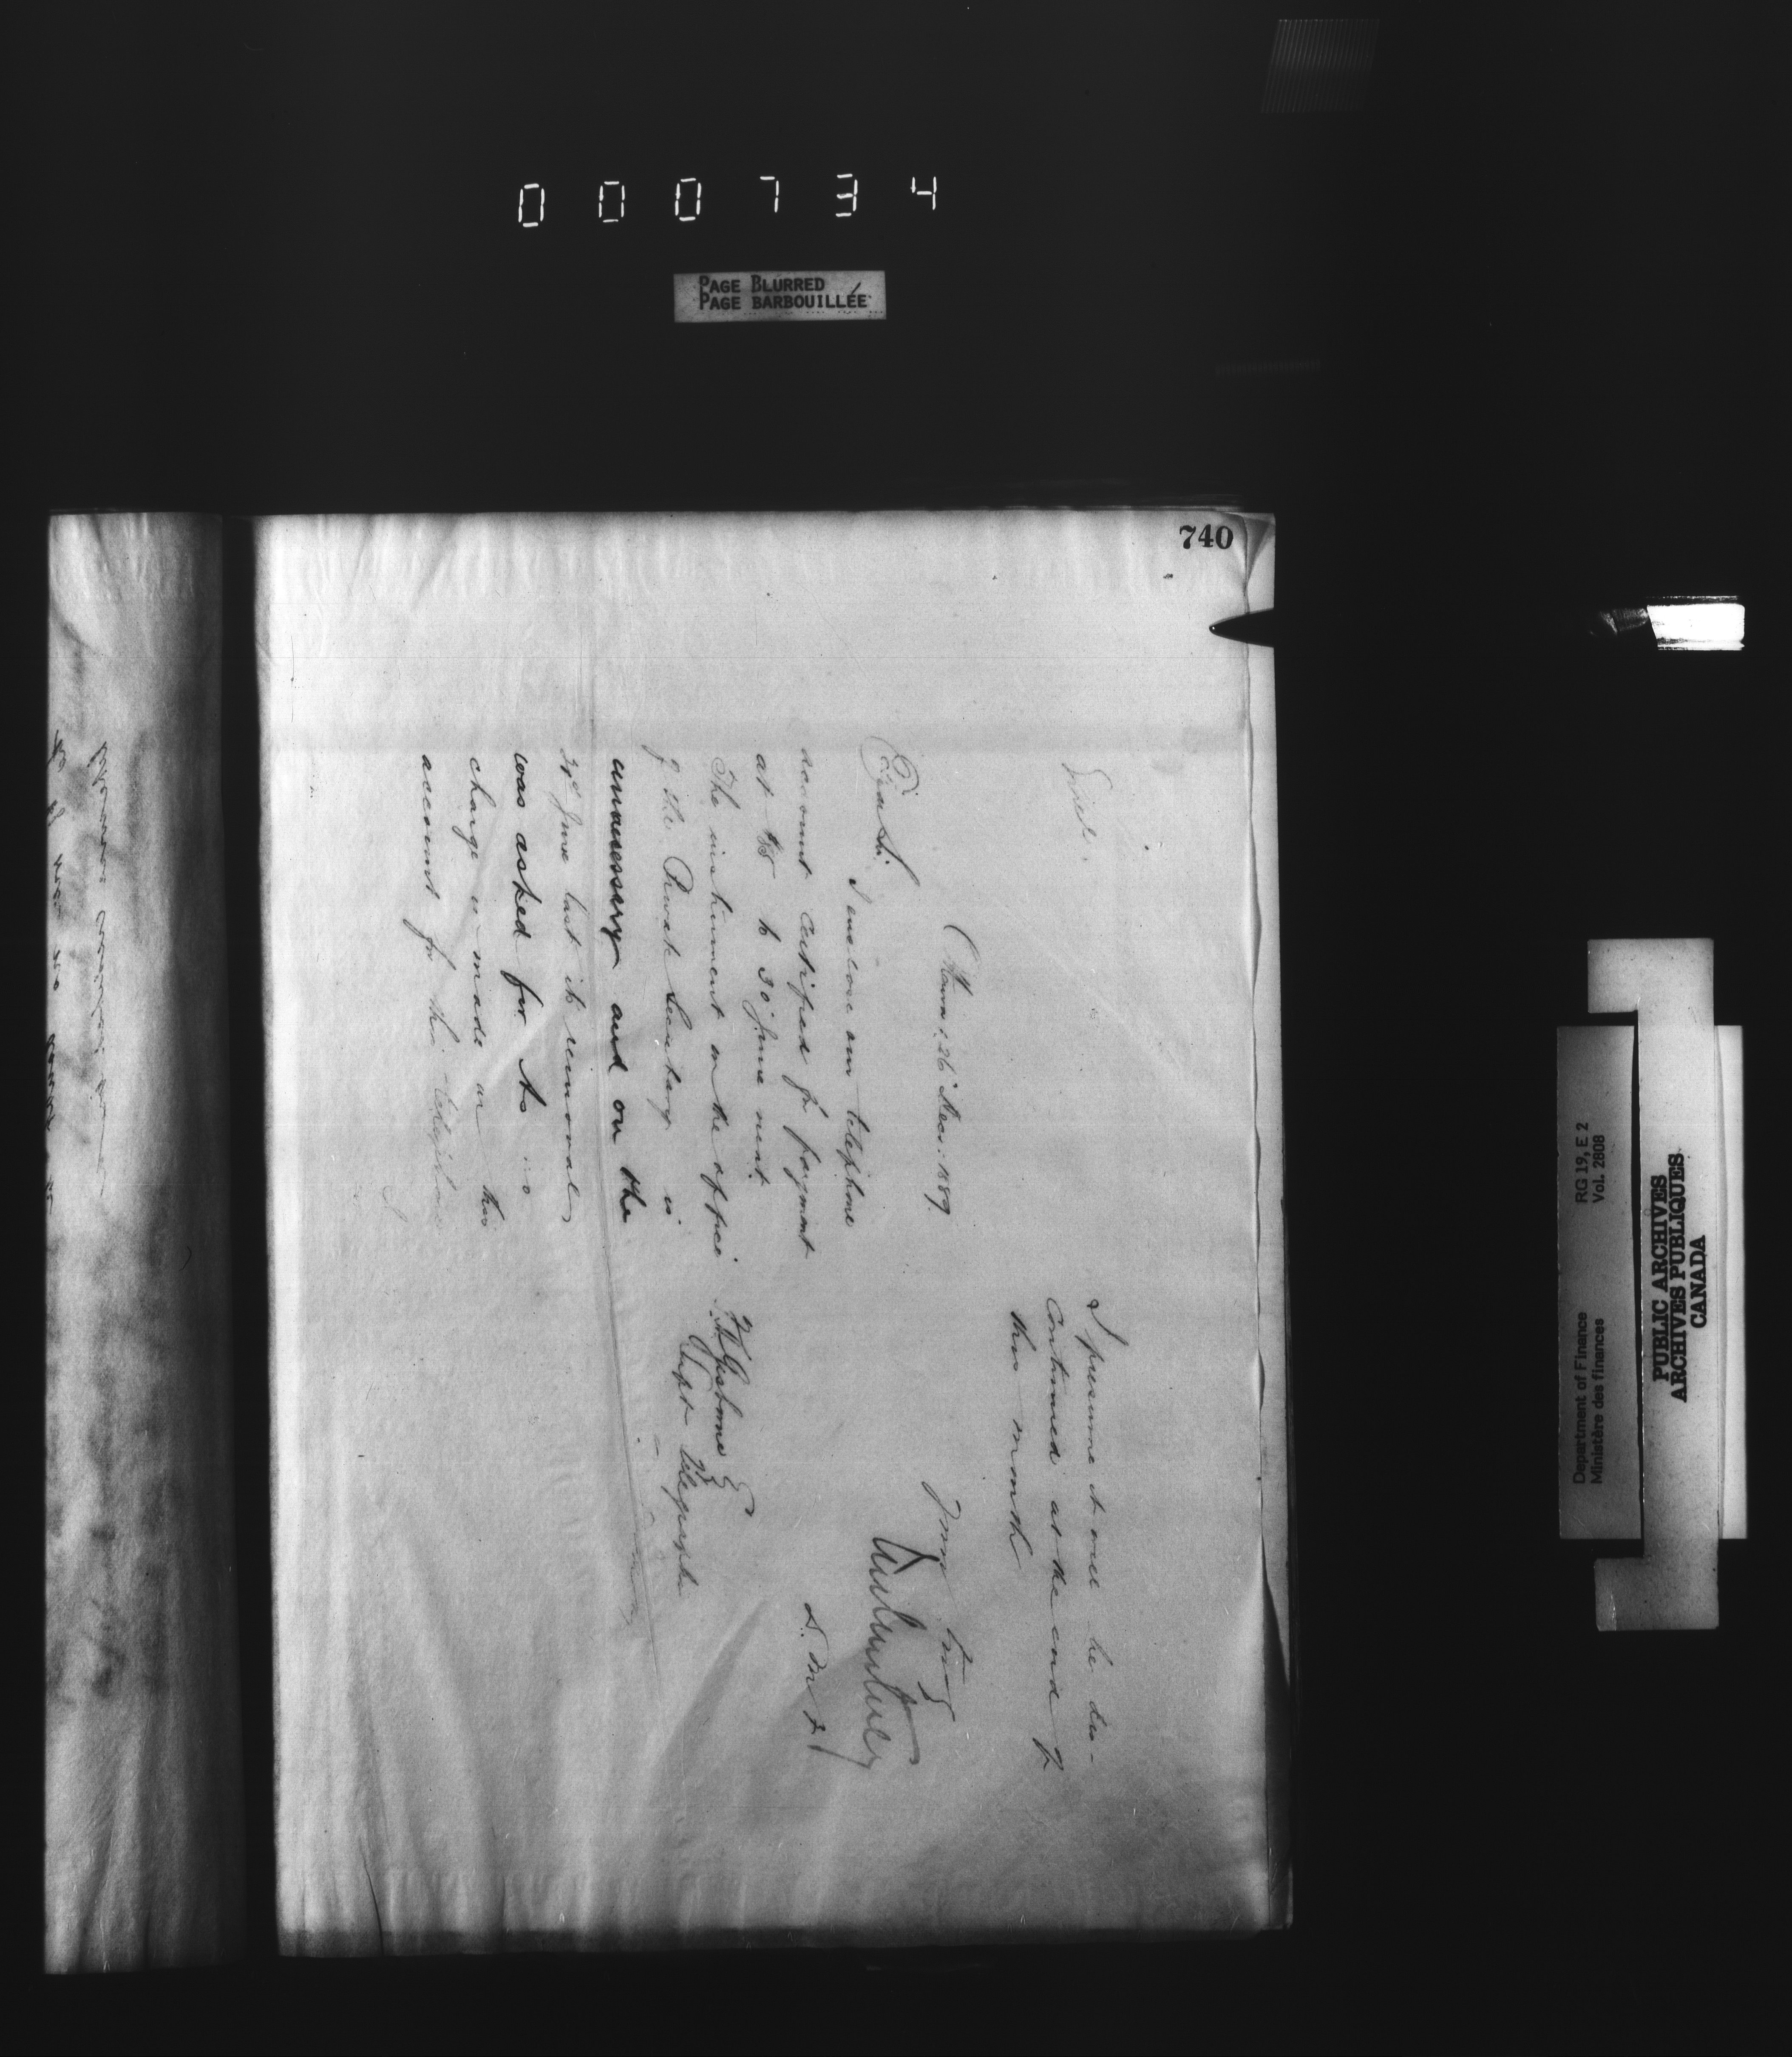 000734
PAGE BLURRED
PAGE BARBOUILLÉE
740
Ottawa, 26 Dec: 1889
Dear Sir,
I enclose our telephone
account certified for payment
at $5 to 30 June next.
The instrument in the office
of the Private Secretary is
unnecessary and on the
June last its removal
was asked for. As no
charge is made in this
account for this telephone
I presume it will be dis-
continued at the end of
this month
Yours truly
D. M. F.
F. N. Gisborne Esq
Supt Telegraphs
RG 19, E 2
Vol. 2808
Department of Finance
Ministère des finances
PUBLIC ARCHIVES
ARCHIVES PUBLIQUES
CANADA